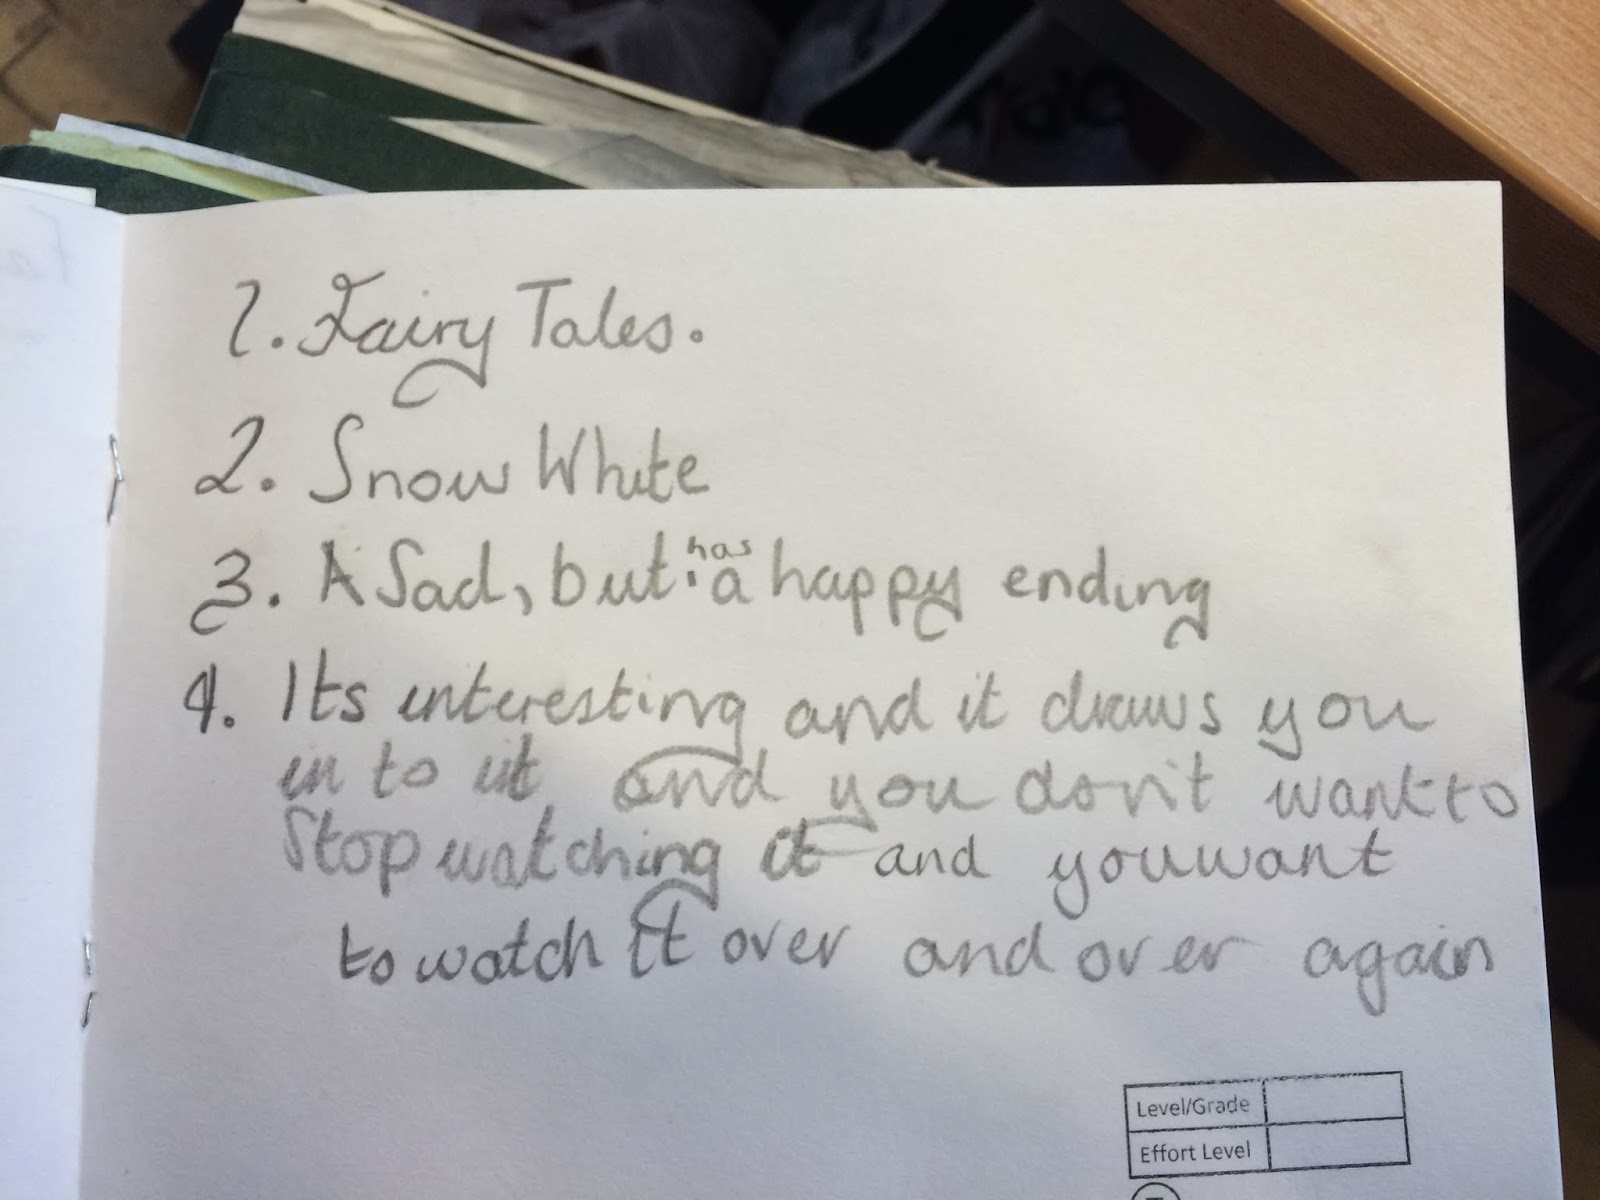 1. Fairy Tales.
2. Snow White
3. A Sad, but has a happy ending
4. Its interesting and it draws you
in to it and you don't want to
Stop watching it and you want
to watch it over and over again
Level/Grade
Effort Level